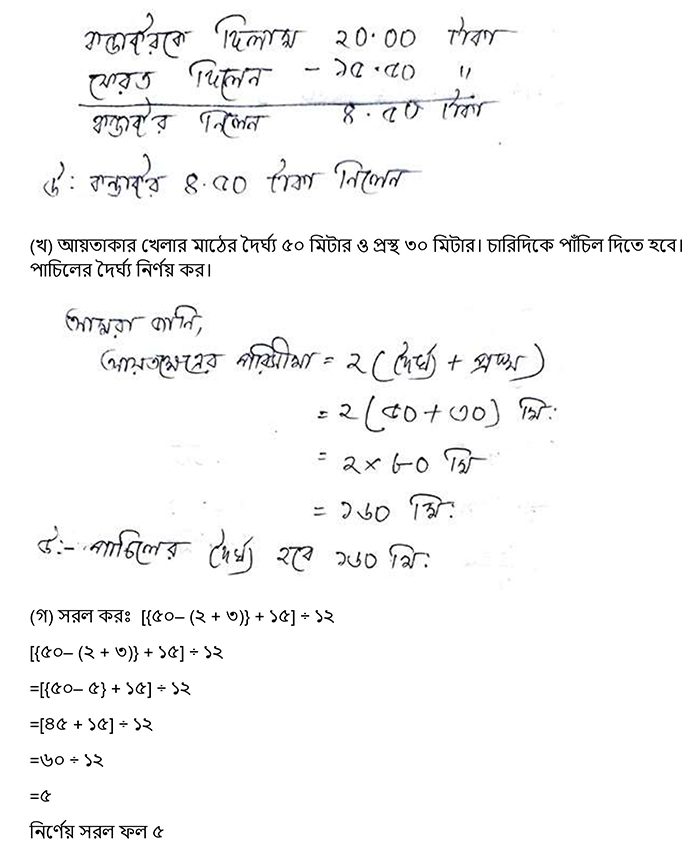 কন্ডাক্টরকে দিলাম ২০.০০ টাকা
ফেরত দিলেন - ১৫.৫০ "
কন্ডাক্টর নিলেন ৪.৫০ টাকা
উ: কন্ডাক্টর ৪.৫০ টাকা নিলেন
(খ) আয়তাকার খেলার মাঠের দৈর্ঘ্য ৫০ মিটার ও প্রস্থ ৩০ মিটার। চারিদিকে পাঁচিল দিতে হবে।
পাচিলের দৈর্ঘ্য নির্ণয় কর।
আমরা জানি,
আয়তক্ষেত্রের পরিসীমা = ২(দৈর্ঘ্য + প্রস্থ)
= ২(৫০+৩০) মি:
= ২×৮০ মি
= ১৬০ মি:
উ:- পাচিলের দৈর্ঘ্য হবে ১৬০ মি:
(গ) সরল করঃ [{৫০– (২ + ৩)} + ১৫] ÷ ১২
[{৫০– (২ + ৩)} + ১৫] ÷ ১২
=[{৫০– ৫} + ১৫] ÷ ১২
=[৪৫ + ১৫] ÷ ১২
=৬০ ÷ ১২
=৫
নির্ণেয় সরল ফল ৫